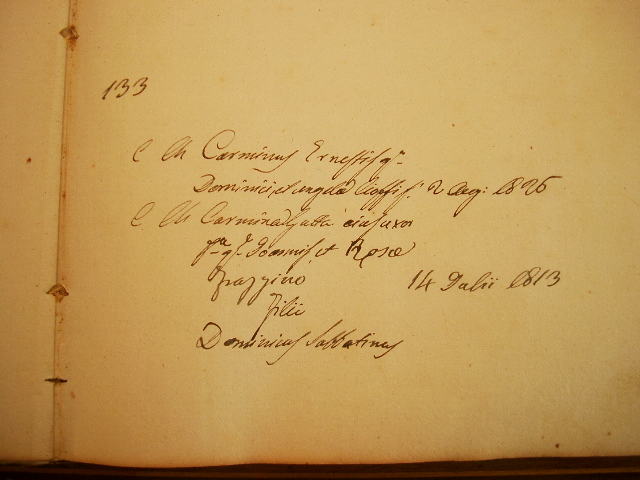 133
C M Carminus Ernesti q.m
Dominici et Angela f. 2 Aug: 1826
C. M Carmina Gatta eius uxor
f.a q.m Joannis et Rosæ
Frazzino 14 Julii 1813
Filii
Dominicus Sabbatinus